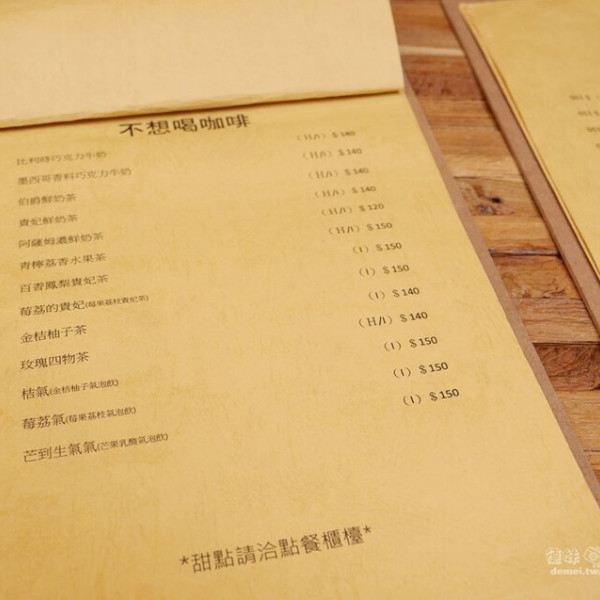 不想喝咖啡
比利時巧克力牛奶 (H/I) $140
墨西哥香料巧克力牛奶 (H/I) $140
伯爵鮮奶茶 (H/I) $140
貴妃鮮奶茶 (H/I) $140
阿薩姆濃鮮奶茶 (H/I) $120
青檸荔香水果茶 (H/I) $150
百香鳳梨貴妃茶 (I) $150
莓荔的貴妃(莓果荔枝貴妃茶) (I) $150
金桔柚子茶 (I) $140
玫瑰四物茶 (H/I) $140
桔氣(金桔柚子氣泡飲) (I) $150
莓荔氣(莓果荔枝氣泡飲) (I) $150
芒到生氣氣(芒果乳酸氣泡飲) (I) $150
*甜點請洽點餐櫃檯*
demei.tw